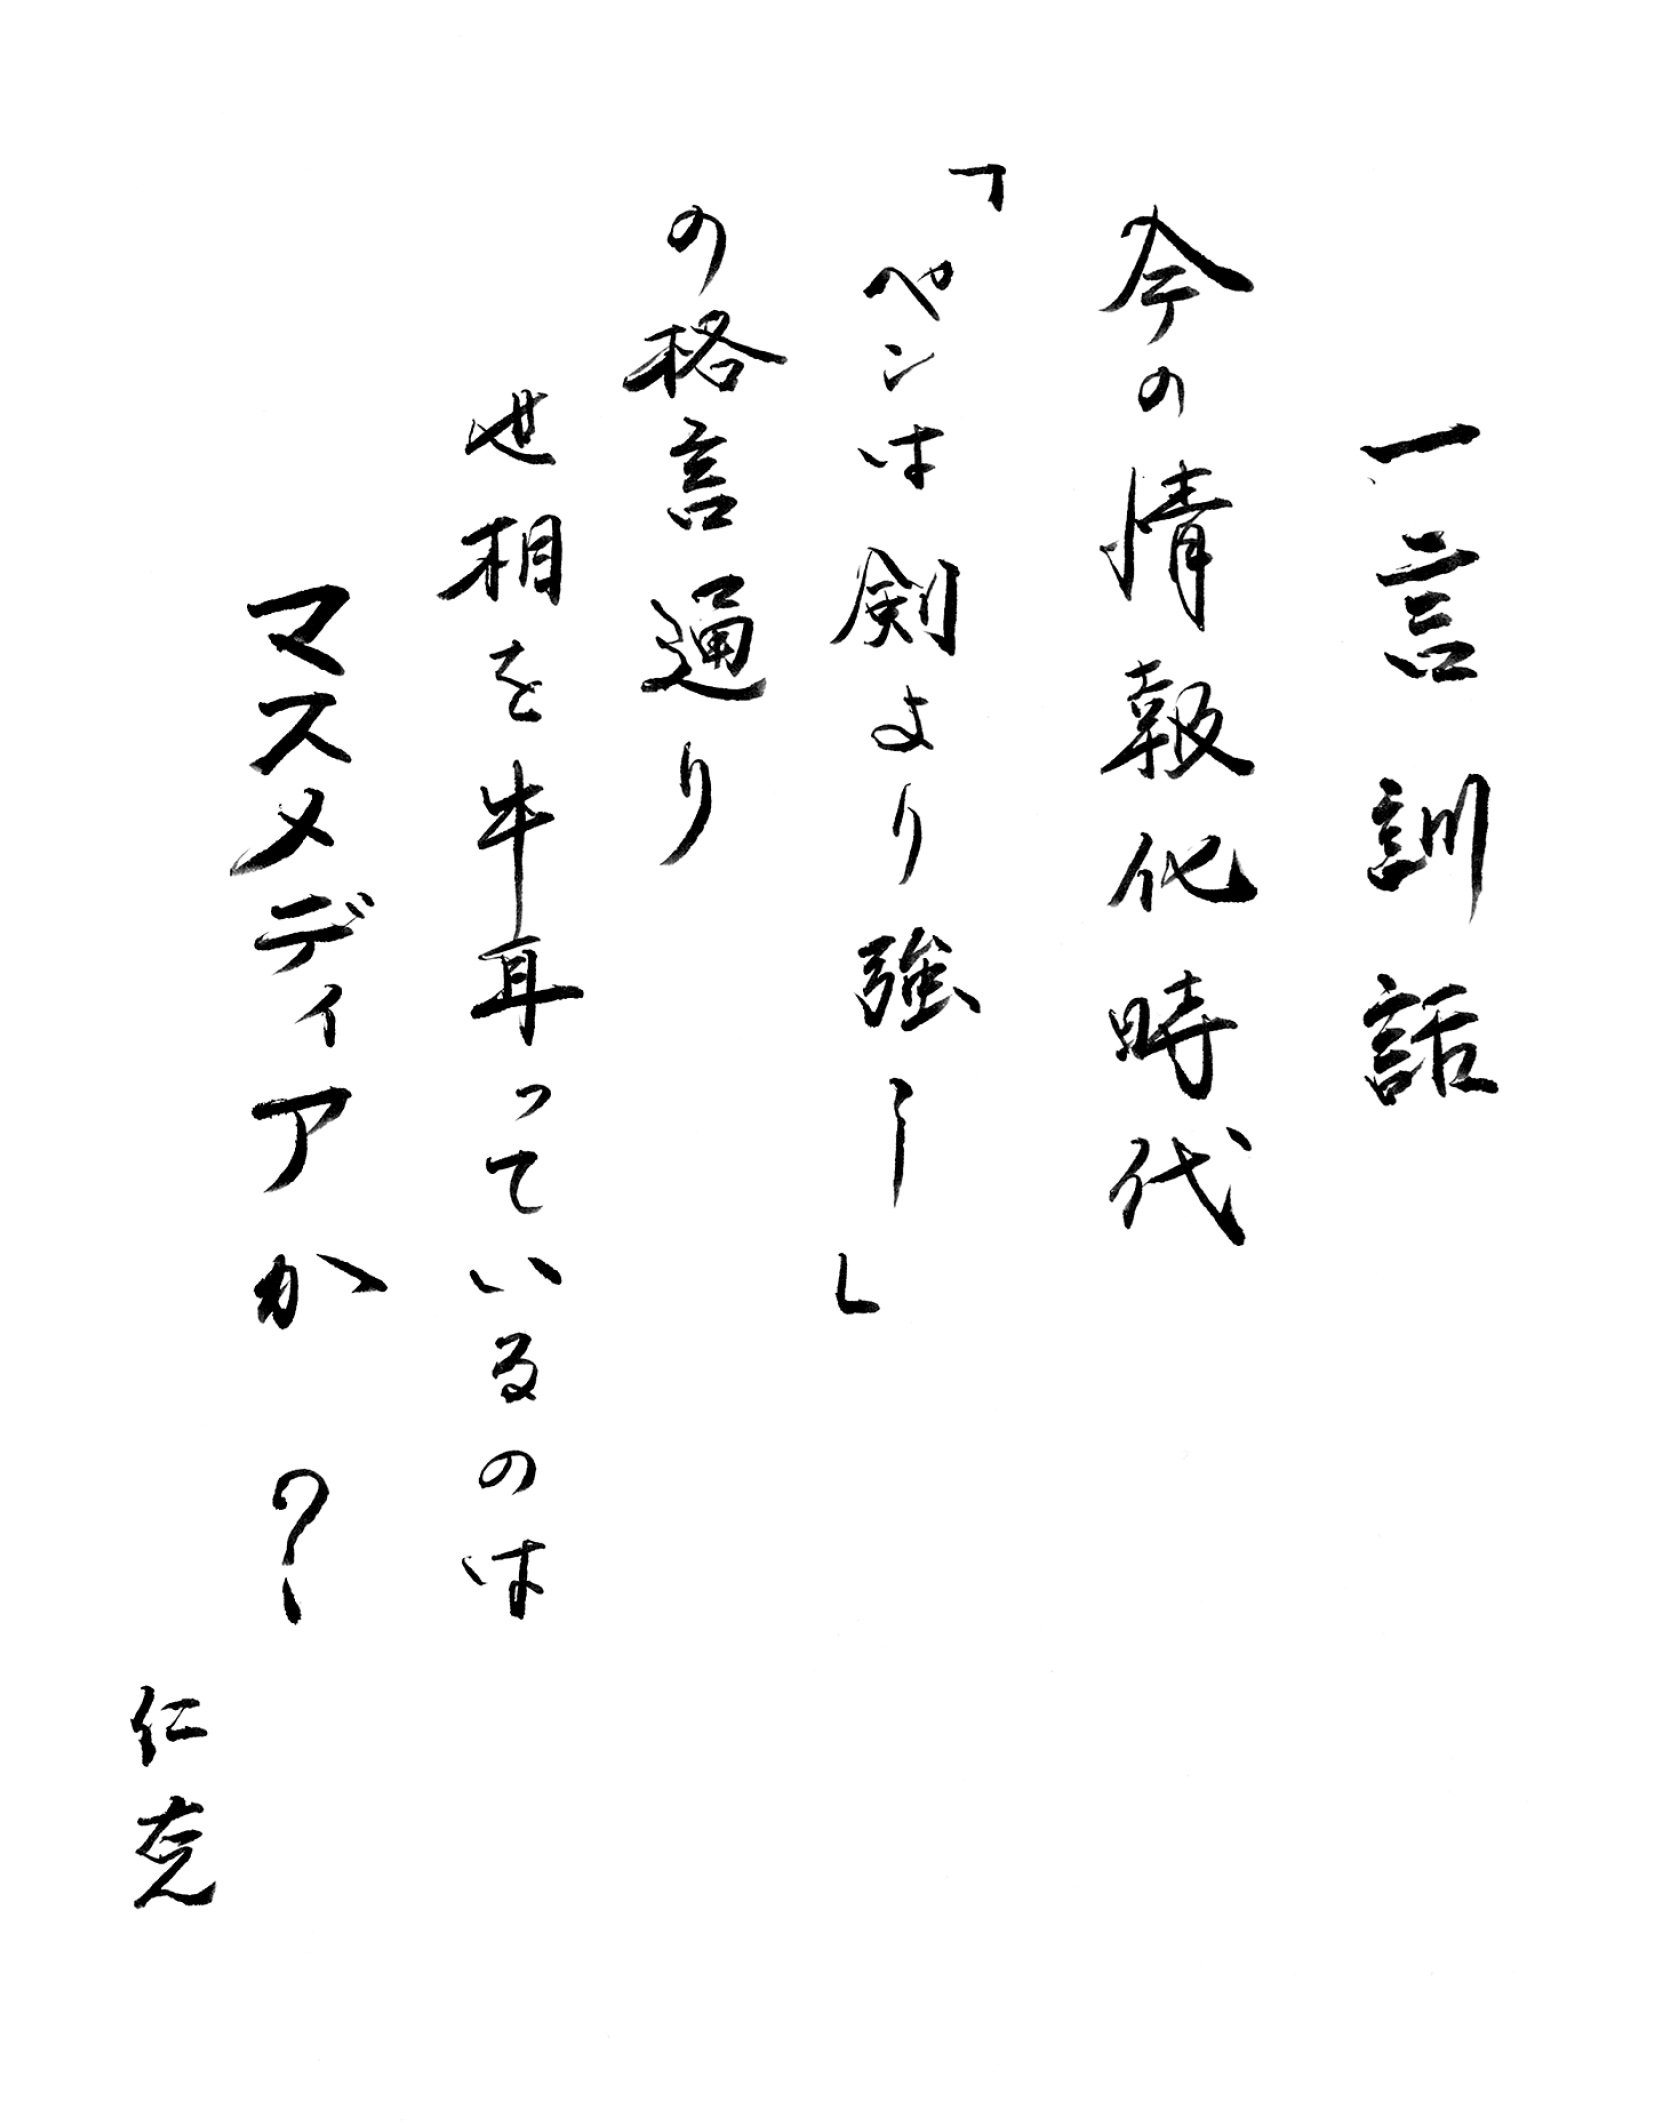 一言訓話
今の情報化時代
「ペンは剣より強し」
の格言通り
世相を牛耳っているのは
マスメディアか?
仁